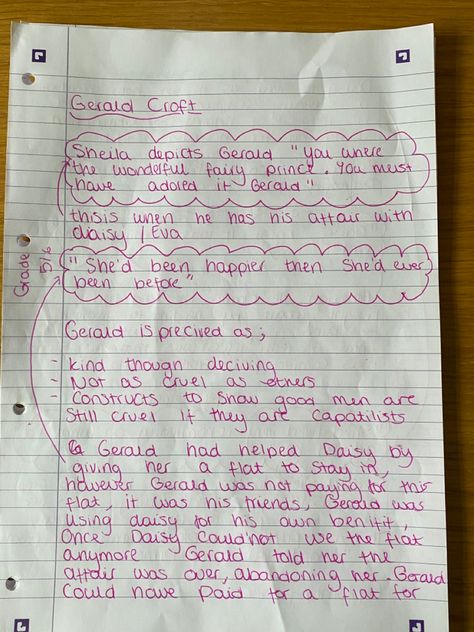 Gerald Croft
Sheila depicts Gerald "You where
the wonderful fairy prince. You must
have adored it Gerald"
this is when he has his affair with
diaisy / Eva
Grade 5/6
"She'd been happier then She'd ever
been before"
Gerald is precived as;
- Kind though deciving
- Not as cruel as others
- Constructs to show good men are
Still cruel if they are Capatilists
Gerald had helped Daisy by
giving her a flat to stay in,
however Gerald was not paying for this
flat, it was his friends, Gerald was
using daisy for his own benifit,
Once Daisy Could'not use the flat
anymore Gerald told her the
affair was over, abandoning her. Gerald
Could have Paid for a flat for